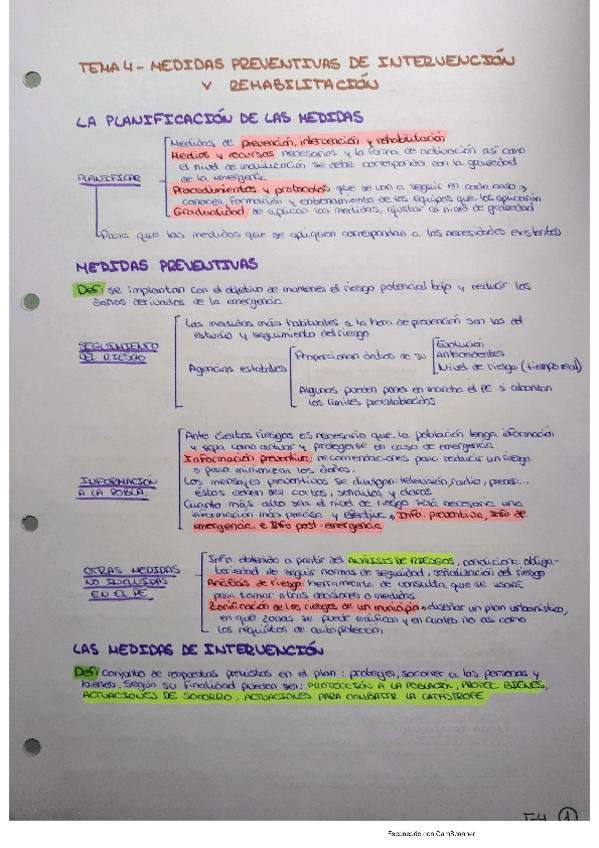 TEMA 4 - MEDIDAS PREVENTIVAS DE INTERVENCIÓN
Y REHABILITACIÓN
LA PLANIFICACIÓN DE LAS MEDIDAS
PLANIFICAR
Medidas de prevención, intervención y rehabilitación
Medios y recursos necesarios y la forma de activación así como
el nivel de movilización se debe corresponder con la gravedad
de la emergencia
Procedimientos y protocolos que se van a seguir en cada caso →
conocer, formación y entrenamiento de los equipos que los aplicarán
Gradualidad se aplican las medidas, ajustar al nivel de gravedad
Para que las medidas que se apliquen correspondan a las necesidades existentes
MEDIDAS PREVENTIVAS
Def: se implantan con el objetivo de mantener el riesgo potencial bajo y reducir los
daños derivados de la emergencia
SEGUIMIENTO
DEL RIESGO
Las medidas más habituales a la hora de prevención son las del
estudio y seguimiento del riesgo
Agencias estatales
Proporcionan datos de su
Evolución
Antecedentes
Nivel de riesgo (tiempo real)
Algunos pueden poner en marcha el PE si alcanzan
los límites preestablecidos
INFORMACIÓN
A LA POBLA.
Ante ciertos riesgos es necesario que la población tenga información
y sepa como actuar y protegerse en caso de emergencia
Información preventiva: recomendaciones para reducir un riesgo
o para minimizar los daños.
Los mensajes preventivos se divulgan: televisión, radio, prensa...
estos deben ser cortos, sencillos y claros
Cuanto más alto sea el nivel de riesgo será necesaria una
información más precisa y efectiva → Info. preventiva, Info de
emergencia e Info post-emergencia
OTRAS MEDIDAS
NO INCLUIDAS
EN EL PE
Info. obtenida a partir del ANÁLISIS DE RIESGOS, obliga-
toriedad de seguir normas de seguridad, señalización del riesgo
Análisis de riesgo: herramienta de consulta que se usará
para tomar otras decisiones o medidas
Zonificación de los riesgos de un municipio → diseñar un plan urbanístico,
en qué zonas se puede edificar y en cuales no así como
los requisitos de autoprotección
LAS MEDIDAS DE INTERVENCIÓN
Def: conjunto de respuestas previstas en el plan: proteger, socorrer a las personas y
bienes. Según su finalidad pueden ser: PROTECCIÓN A LA POBLACIÓN, PROTEC. BIENES,
ACTUACIONES DE SOCORRO, ACTUACIONES PARA COMBATIR LA CATÁSTROFE
T-4 1
Escaneado con CamScanner